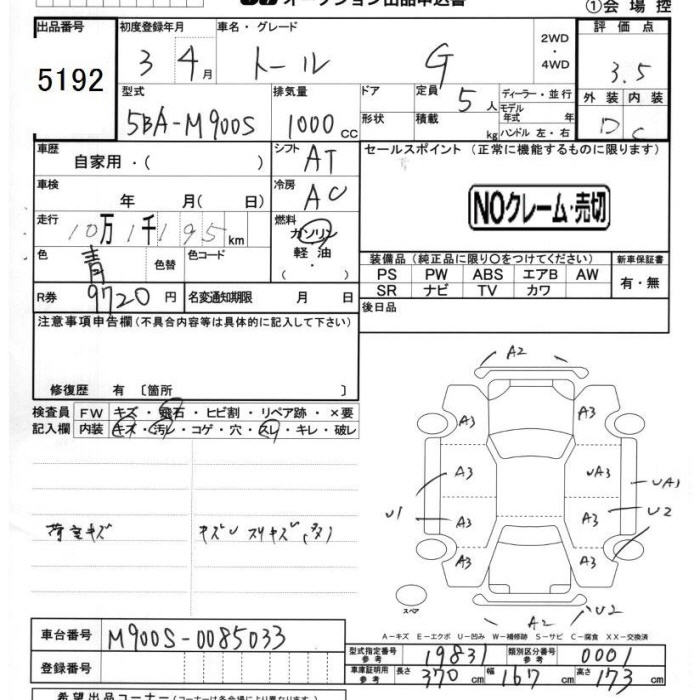 オークション出品申込書
①会場控
出品番号 初度登録年月 車名・グレード 2WD・4WD 評価点
5192 3 4月 トール G 3.5
型式 排気量 ドア 定員 5人 ディーラー・並行 外装 内装
5BA-M900S 1000cc 形状 積載 kg モデル年式 年 ハンドル 左・右 D C
車歴 自家用・( ) シフト AT セールスポイント (正常に機能するものに限ります)
車検 年 月(日) 冷房 AC
NOクレーム・売切
走行 10万1千195km 燃料 ガソリン 軽油 ( ・ )
色 青 色替 色コード
装備品(純正品に限り○をつけてください) 新車保証書
PS PW ABS エアB AW 有・無
SR ナビ TV カワ
R券 9720円 名変通知期限 月 日 後日品
注意事項申告欄(不具合内容等は具体的に記入して下さい)
修復歴 有〔箇所 〕
検査員 FW キズ・飛石・ヒビ割・リペア跡・×要
記入欄 内装 キズ・汚レ・コゲ・穴・スレ・キレ・破レ
荷室キズ
A2
A3 A3
A3 UA3 UA3
U1 A3 A3 U2
A3 A3
スペア
A2 U2
A-キズ E-エクボ U-凹み W-補修跡 S-サビ C-腐食 XX-交換済
車台番号 M900S-0085033
型式指定番号 参考 19831 類別区分番号 参考 0001
登録番号
車庫証明用 参考 長さ 370cm 幅 167cm 高さ 173cm
希望出品コーナー(コーナー名は各会場により異なります)